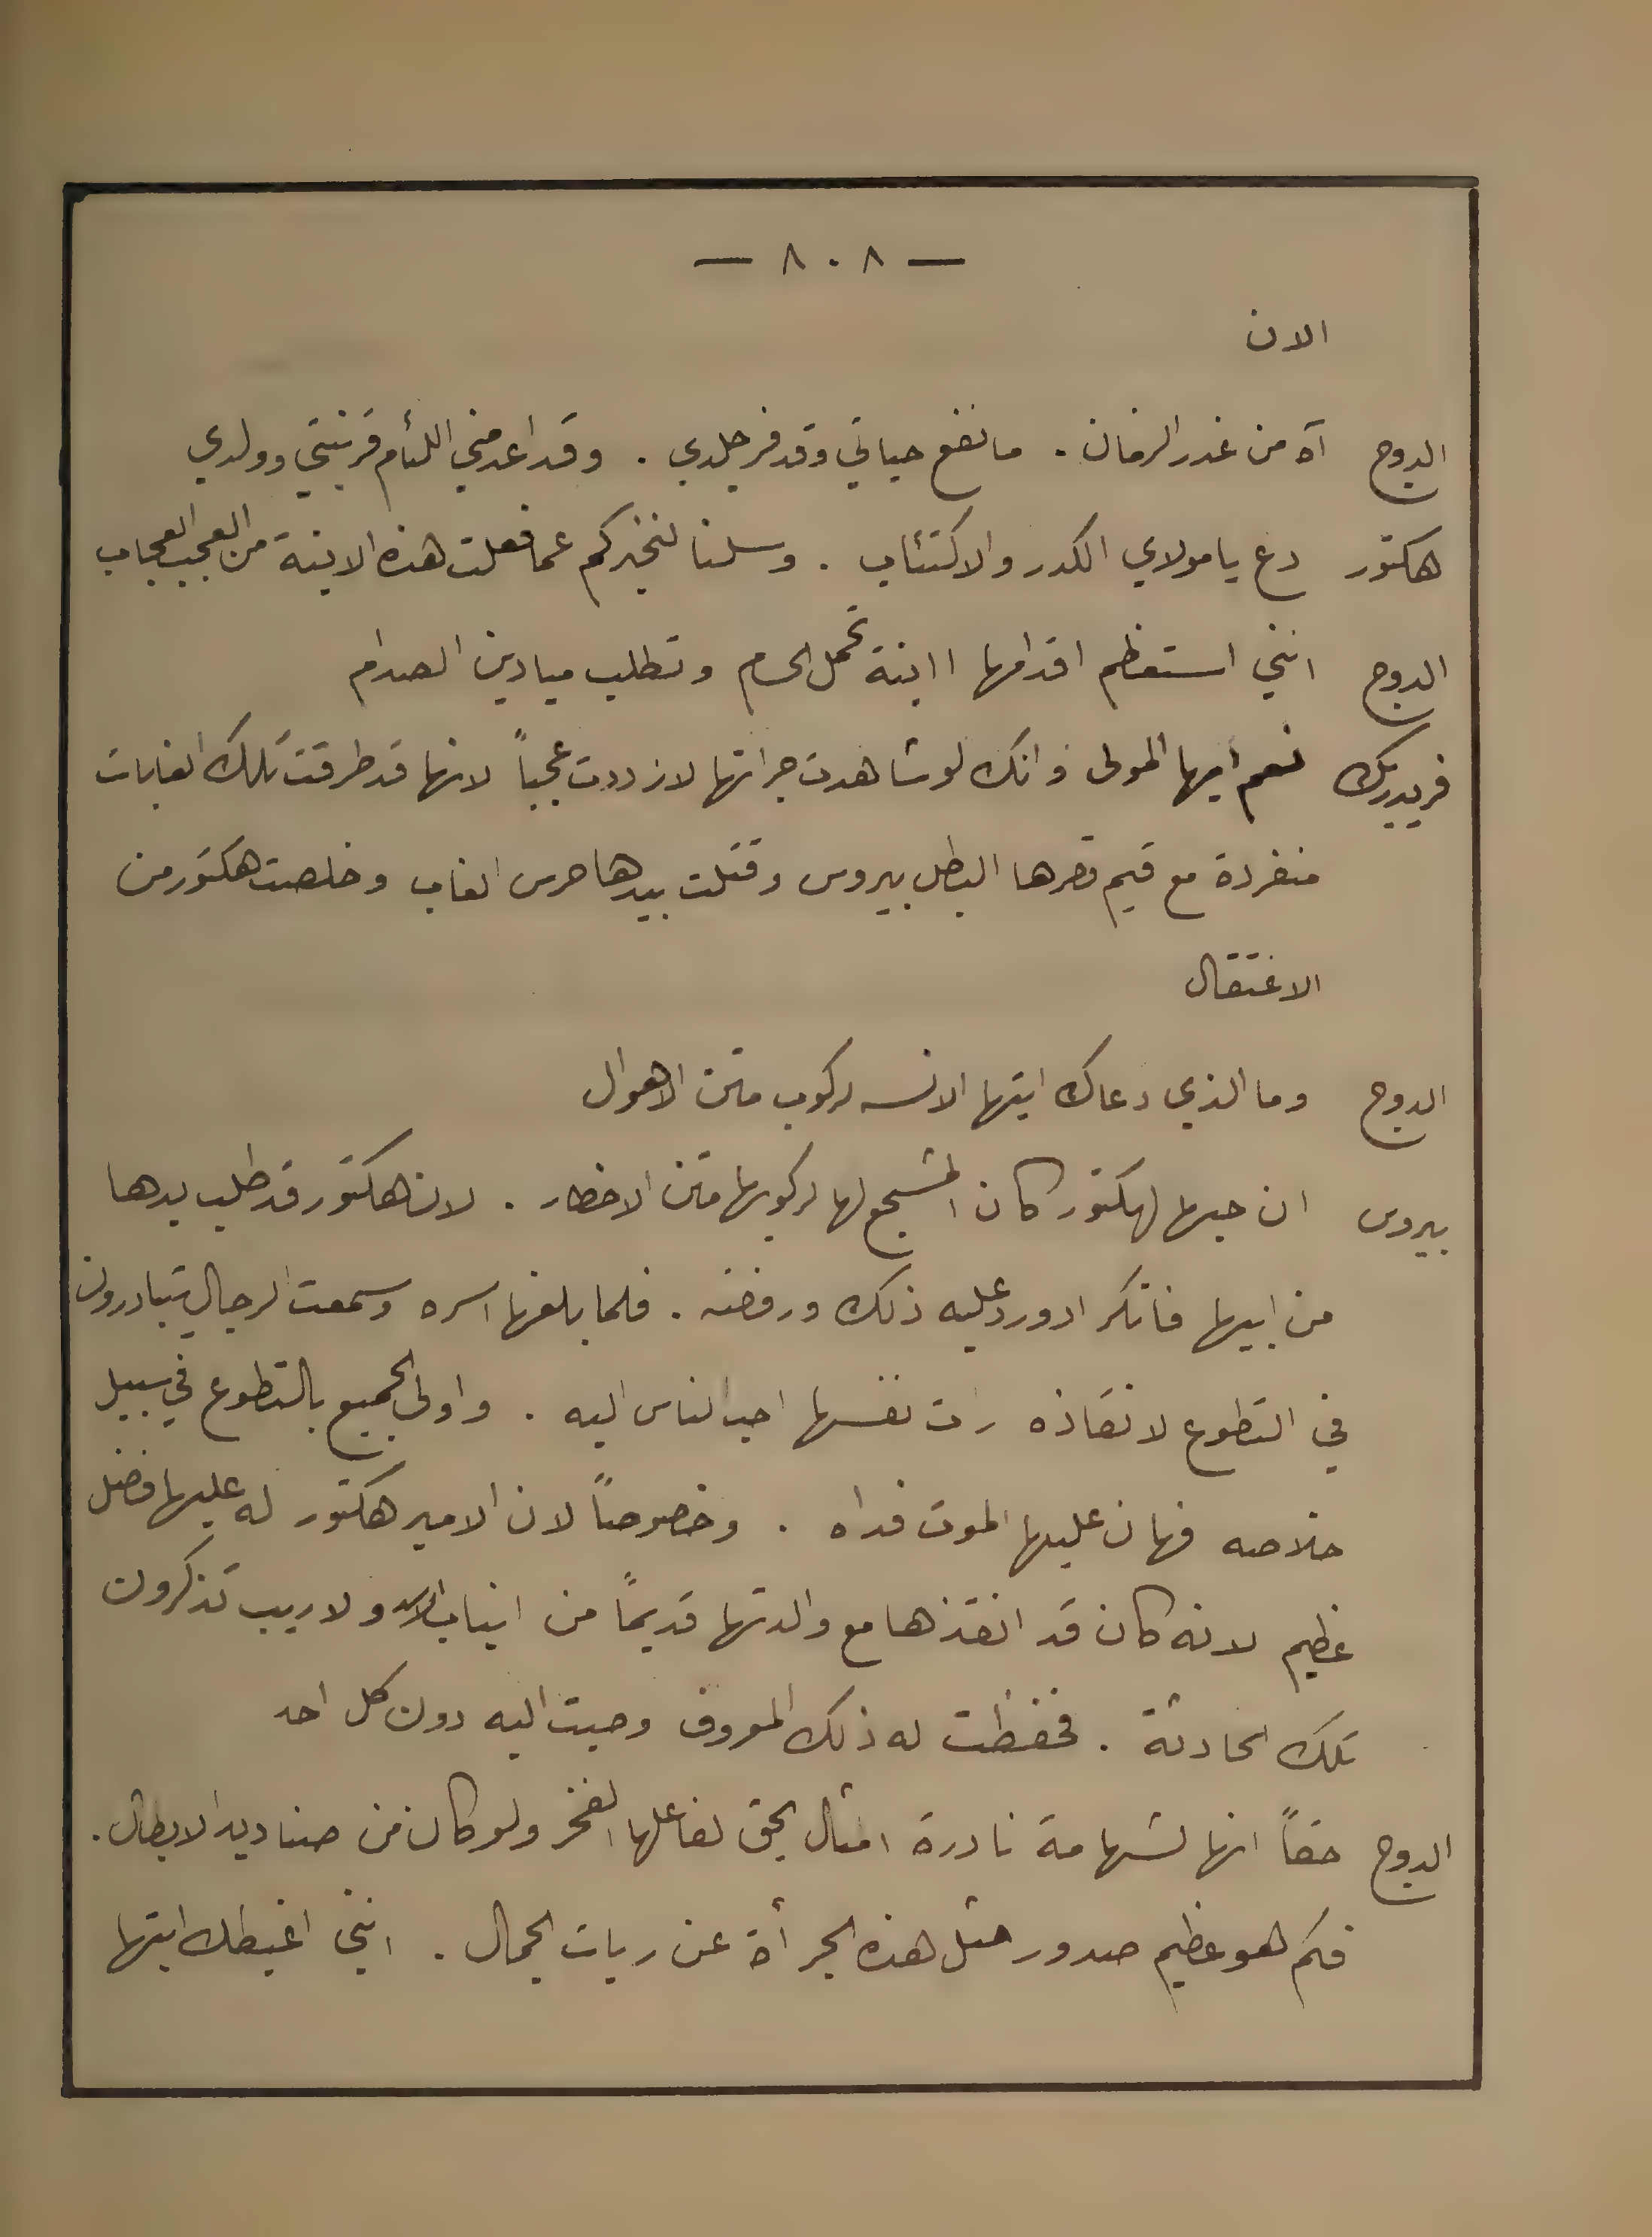 — ٨٠٨ —
الان
الدوج آه من غدر الزمان . ما نفع حياتي وقد فر جلدي . وقد اعدمني اللئام قرينتي وولدي
هكتور دع يا مولاي الكدر والاكتئاب . وسلنا لنخبركم عما فعلت هذه الابنة من العجب العجاب
الدوج انني استعظم اقدامها اابنة تحمل الحسام وتطلب ميادين الصدام
فريدريك نعم ايها المولى وانك لو شاهدت جراتها لازددت عجباً لانها قد طرقت تلك الغابات
منفردة مع قيم قصرها البطل بيروس وقتلت بيدها حرس الغاب وخلصت هكتور من
الاغتقال
الدوج وما الذي دعاك ايتها الانسه لركوب متن الاهوال
بيروس ان حبها لهكتور كان المشجع لها لركوبها متن الاخطار . لان هكتور قد طلب يدها
من ابيها فانكر ادورد عليه ذلك ورفضه . فلما بلغها اسره وسمعت الرجال يتبادرون
في التطوع لانقاذه رات نفسها احب الناس اليه . واولى الجميع بالتطوع في سبيل
خلاصه فهان عليها الموت فداه . وخصوصاً لان الامير هكتور له عليها فضل
عظيم لانه كان قد انقذها مع والدتها قديماً من انياب الاسد ولا ريب تذكرون
تلك الحادثة . فحفظت له ذلك المعروف وصبت اليه دون كل احد
الدوج حقاً انها لشهامة نادرة امثال يحق لفاعلها الفخر ولو كان من صناديد الابطال .
فكم هو عظيم صدور مثل هذه الجرأة عن ربات الجمال . انني اغبطك ايتها